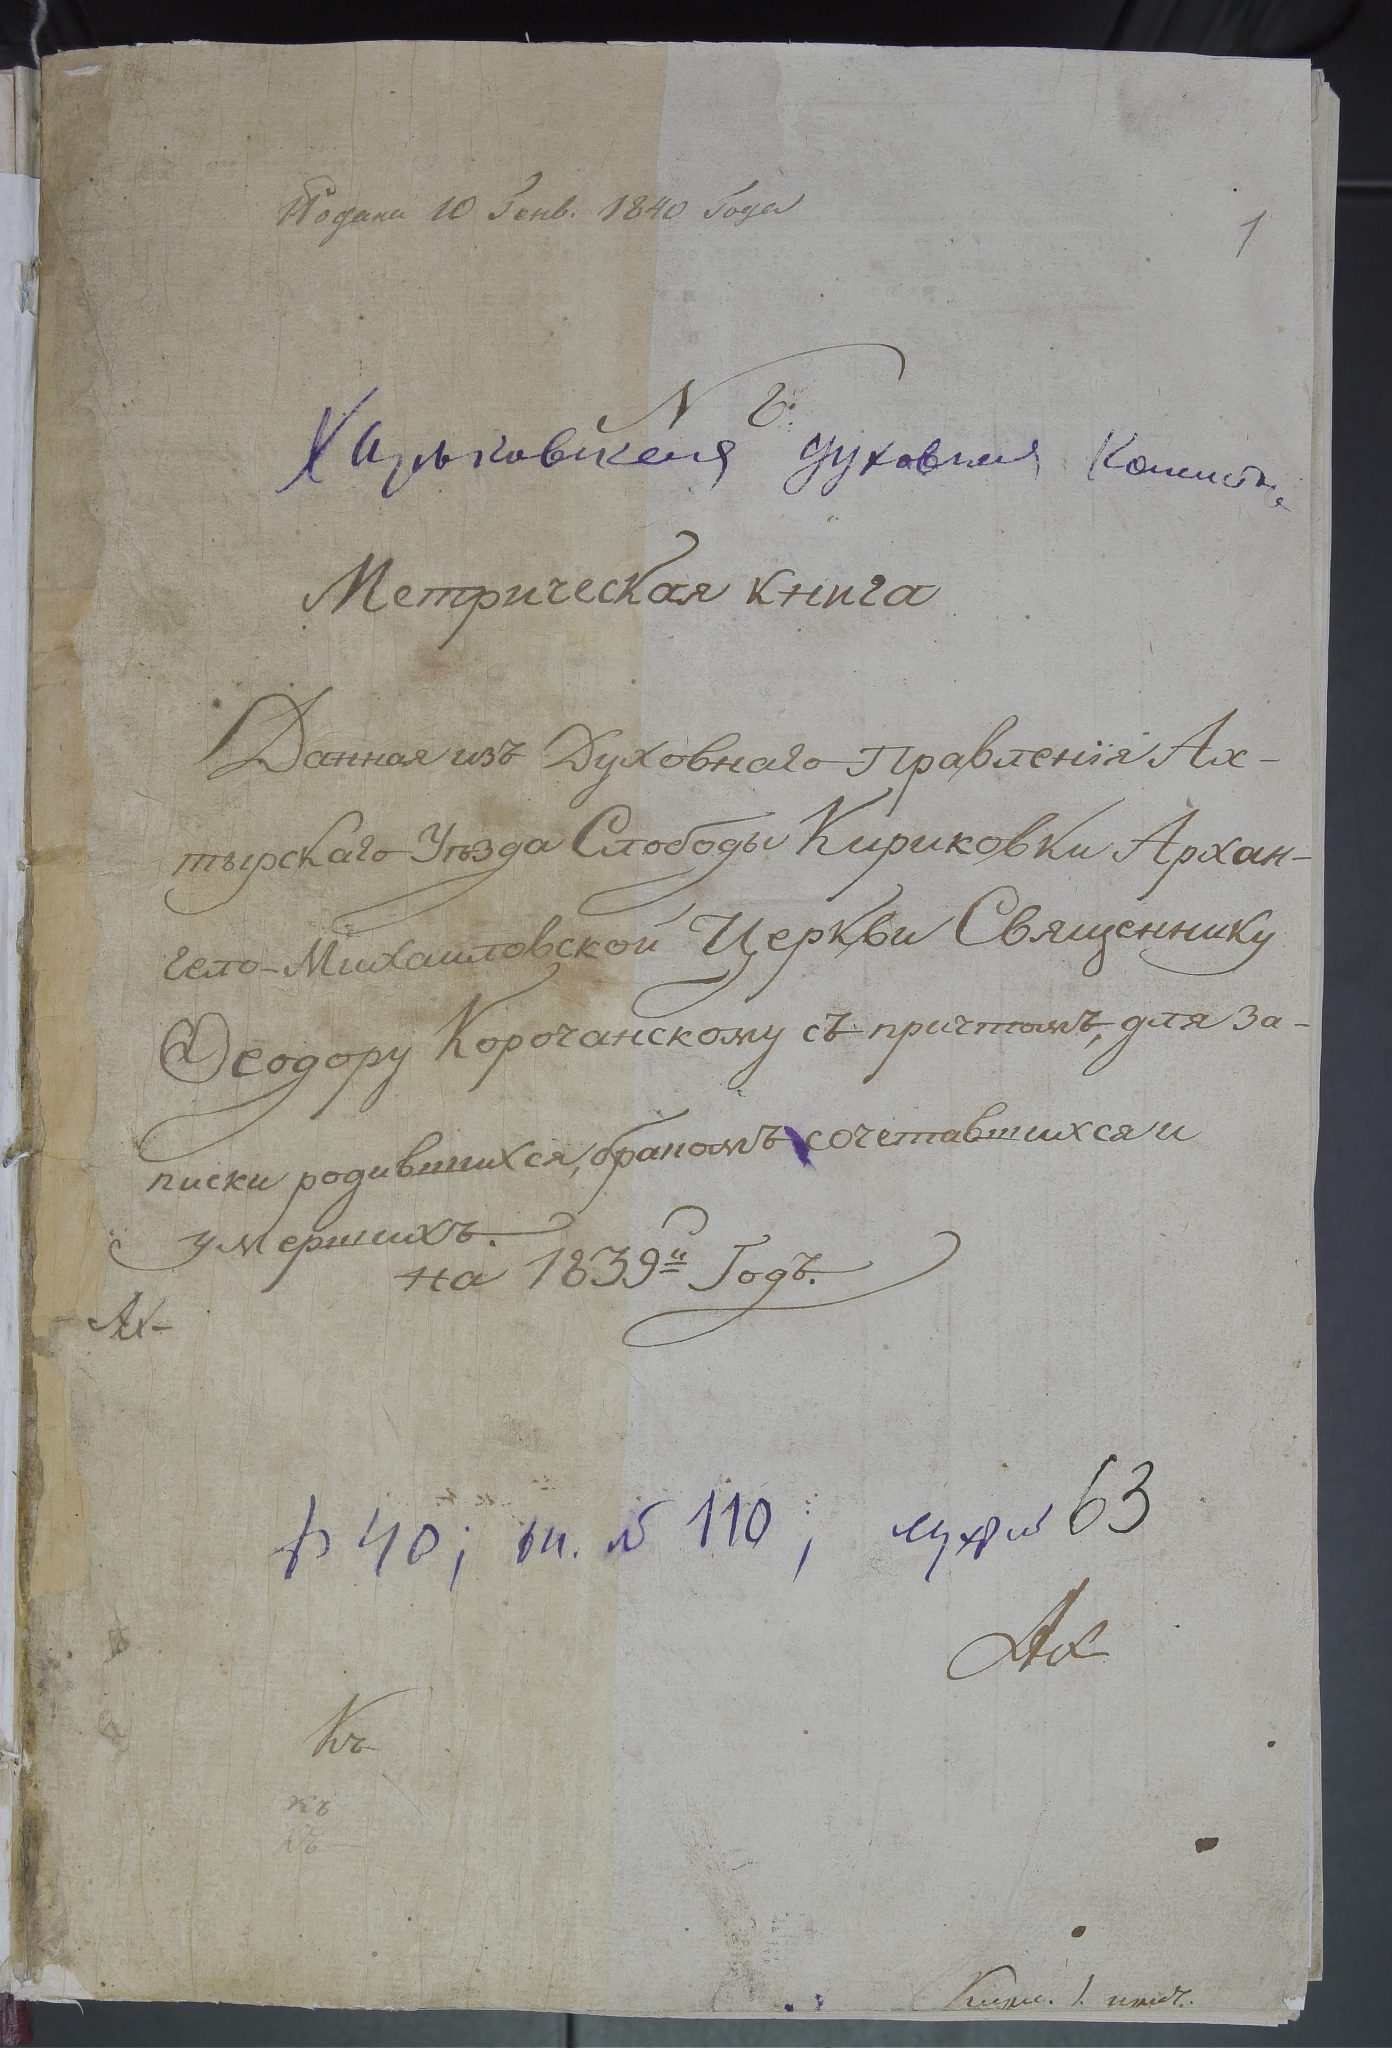 Подана 10 Генв. 1840 Года
1
N 6.
Харьковская духовная Консисто
Метрическая книга
Данная изъ Духовнаго Правленія Ах-
тырскаго Уѣзда Слободы Кириковки Архан-
гело-Михаиловской Церкви Священнику
Ѳеодору Корочанскому съ причтомъ, для за-
писки родившихся, бракомъ сочетавшихся и
умершихъ.
на 1839й Годъ.
Ах-
ф 40; оп. № 110; 63
Ах
Къ
къ
къ